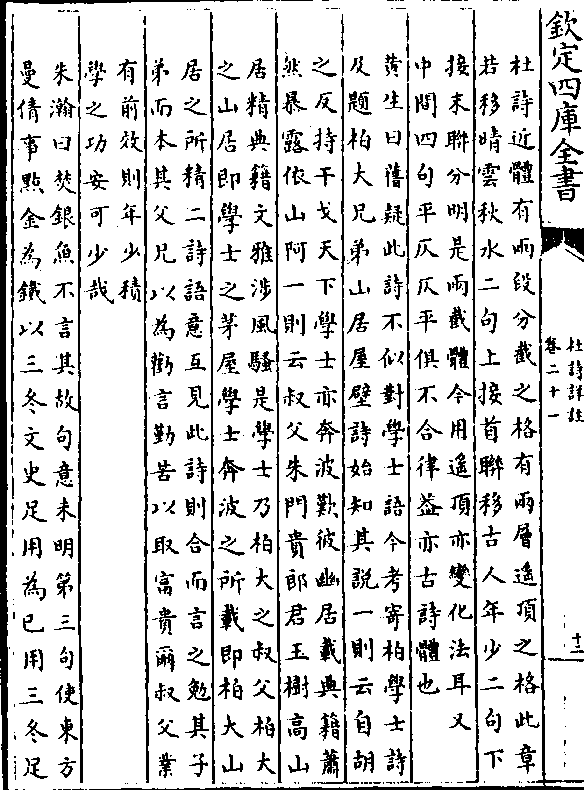 欽定四庫全書
杜詩詳註
卷二十一
十二
杜詩近體有兩段分截之格有兩層遥頂之格此章
若移晴雲秋水二句上接首聯移古人年少二句下
接末聯分明是兩截體今用遥頂亦變化法耳又
中間四句平仄仄平俱不合律葢亦古詩體也
黄生曰舊疑此詩不似對學士語今考寄柏學士詩
及題柏大兄弟山居屋壁詩始知其說一則云自胡
之反持干戈天下學士亦奔波歎彼幽居載典籍蕭
然暴露依山阿一則云叔父朱門貴郎君玉樹髙山
居精典籍文雅涉風騷是學士乃柏大之叔父柏大
之山居即學士之茅屋學士奔波之所載即柏大山
居之所精二詩語意互見此詩則合而言之勉其子
弟而本其父兄以為勸言勤苦以取富貴爾叔父業
有前效則年少積
學之功安可少哉
朱瀚曰焚銀魚不言其故句意未明第三句使東方
曼倩事點金為鐵以三冬文史足用為已用三冬足